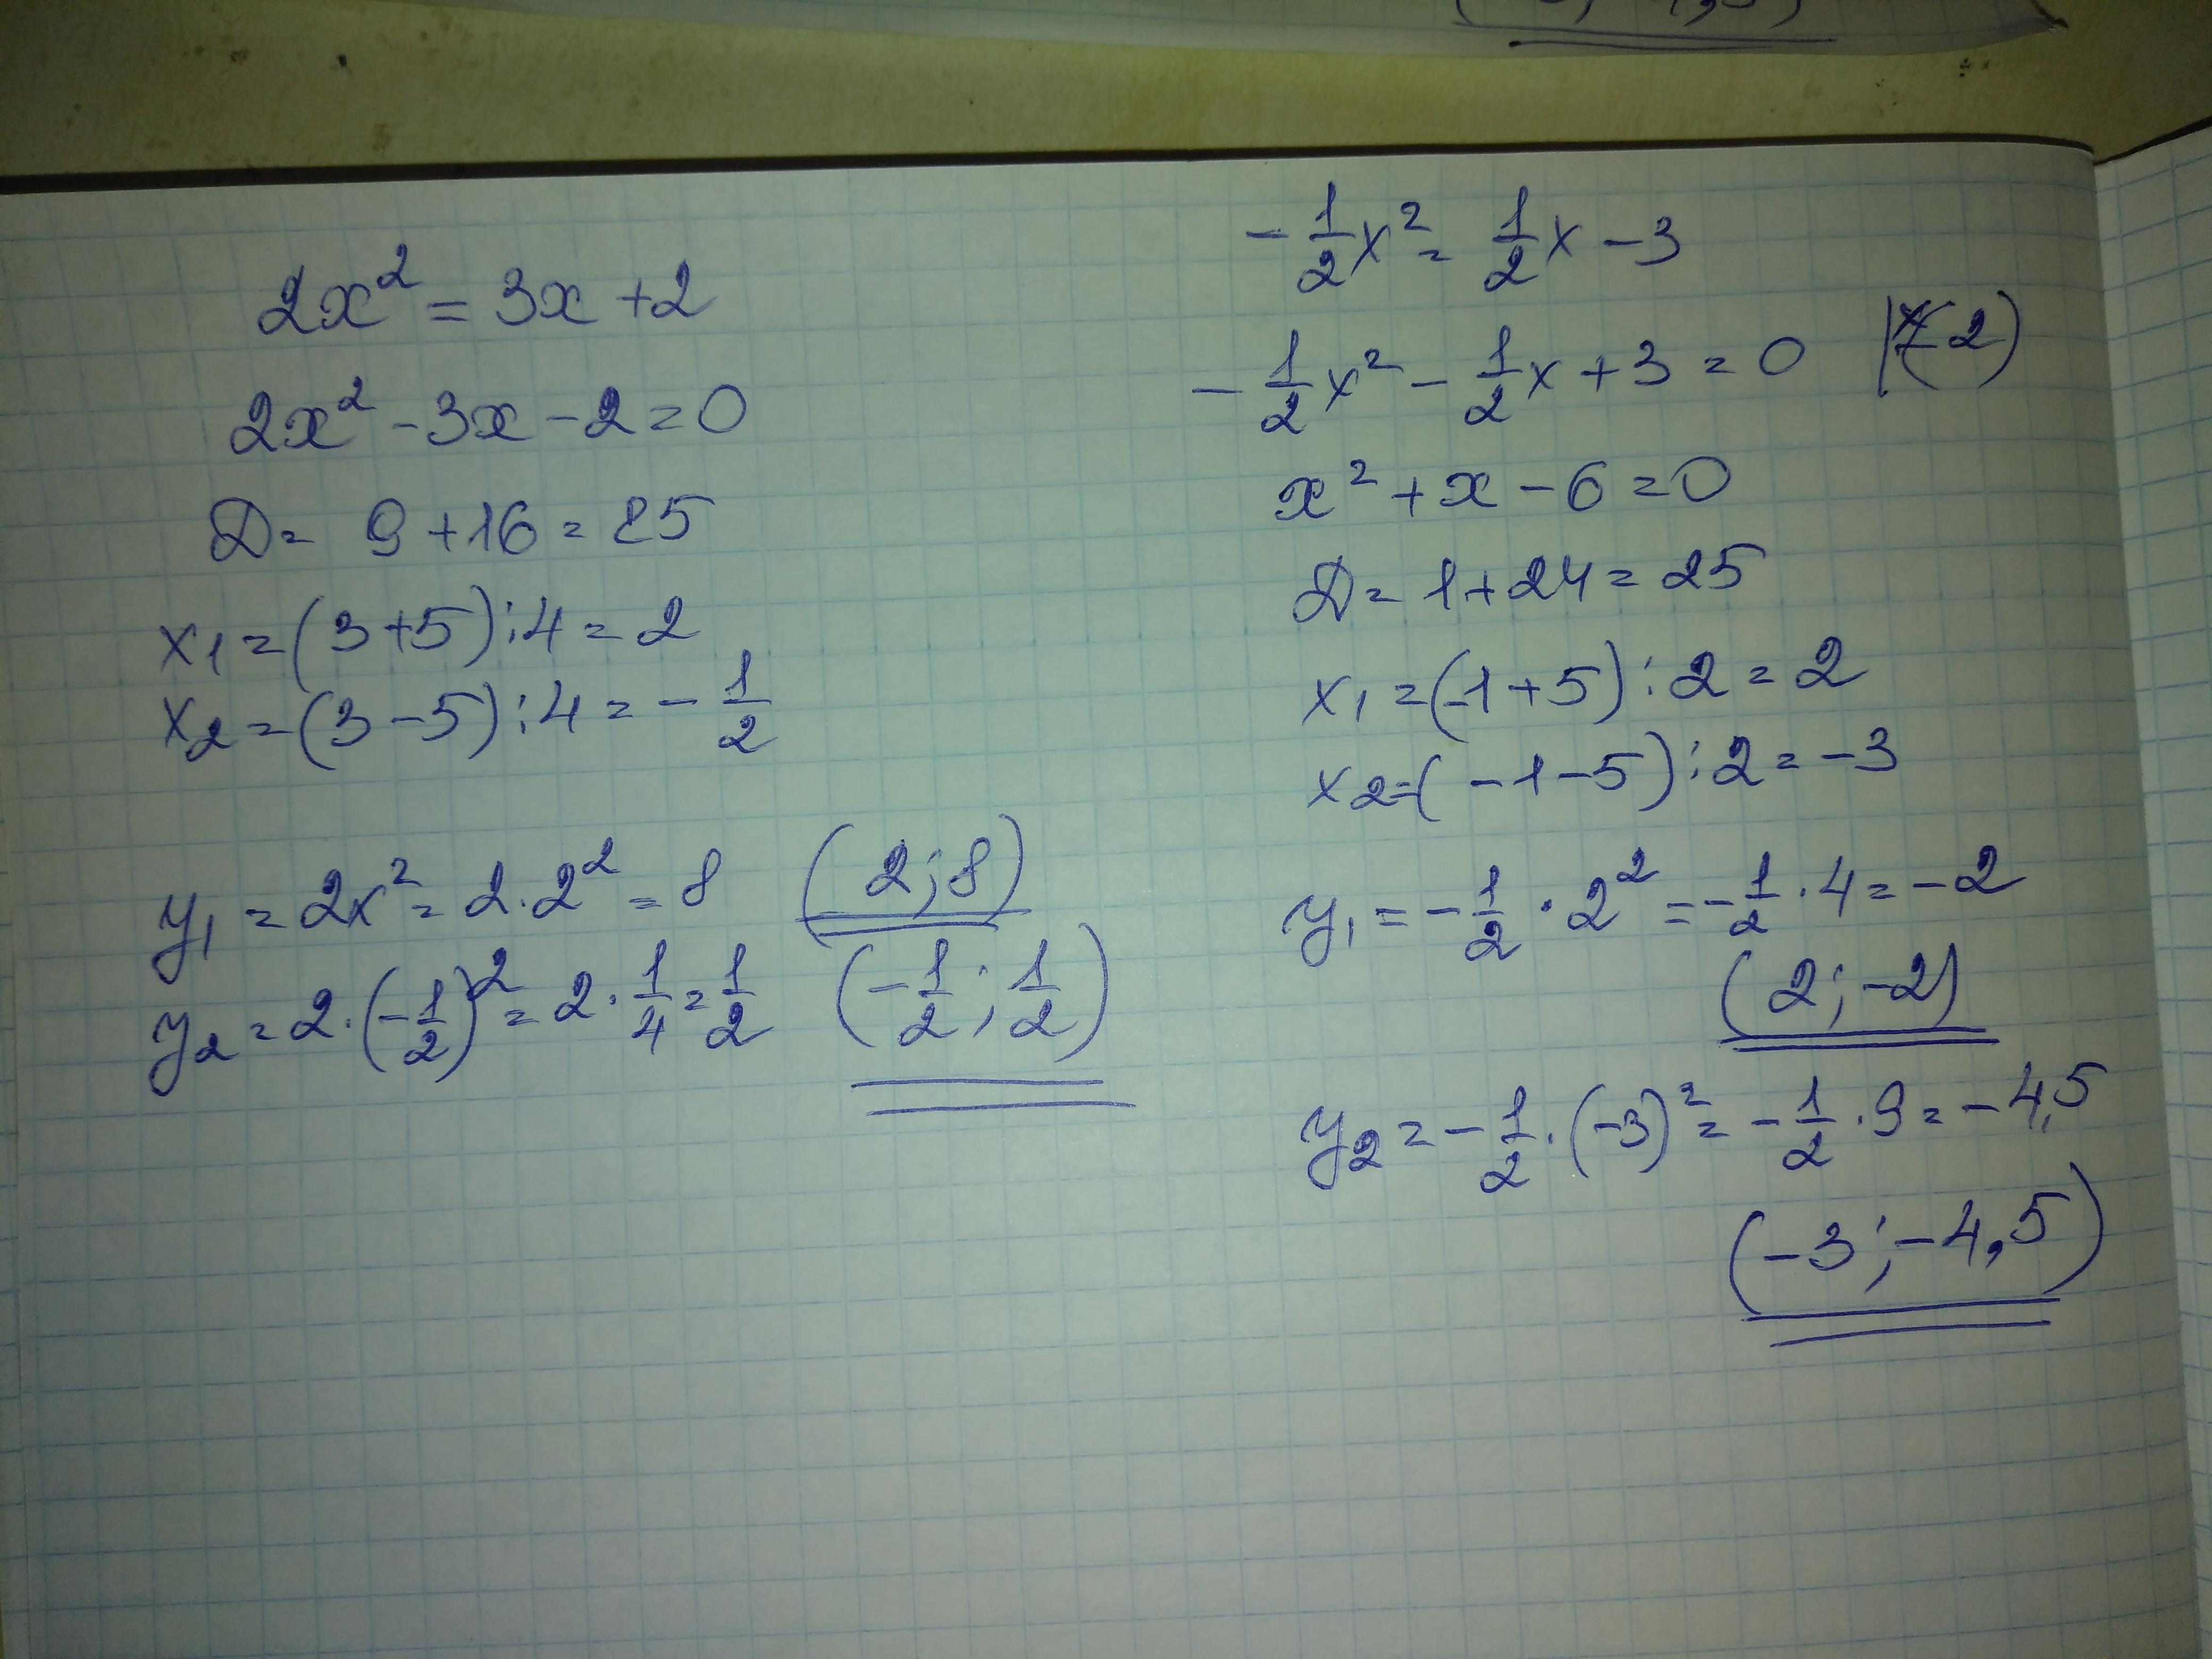 2x² = 3x + 2
2x² - 3x - 2 = 0
D = 9 + 16 = 25
x₁ = (3 + 5) : 4 = 2
x₂ = (3 - 5) : 4 = - 1/2
y₁ = 2x² = 2 · 2² = 8 (2; 8)
y₂ = 2 · (-1/2)² = 2 · 1/4 = 1/2 (-1/2; 1/2)
- 1/2 x² = 1/2 x - 3
- 1/2 x² - 1/2 x + 3 = 0 |×(-2)
x² + x - 6 = 0
D = 1 + 24 = 25
x₁ = (-1 + 5) : 2 = 2
x₂ = (-1 - 5) : 2 = -3
y₁ = - 1/2 · 2² = - 1/2 · 4 = -2
(2; -2)
y₂ = - 1/2 · (-3)² = - 1/2 · 9 = -4,5
(-3; -4,5)